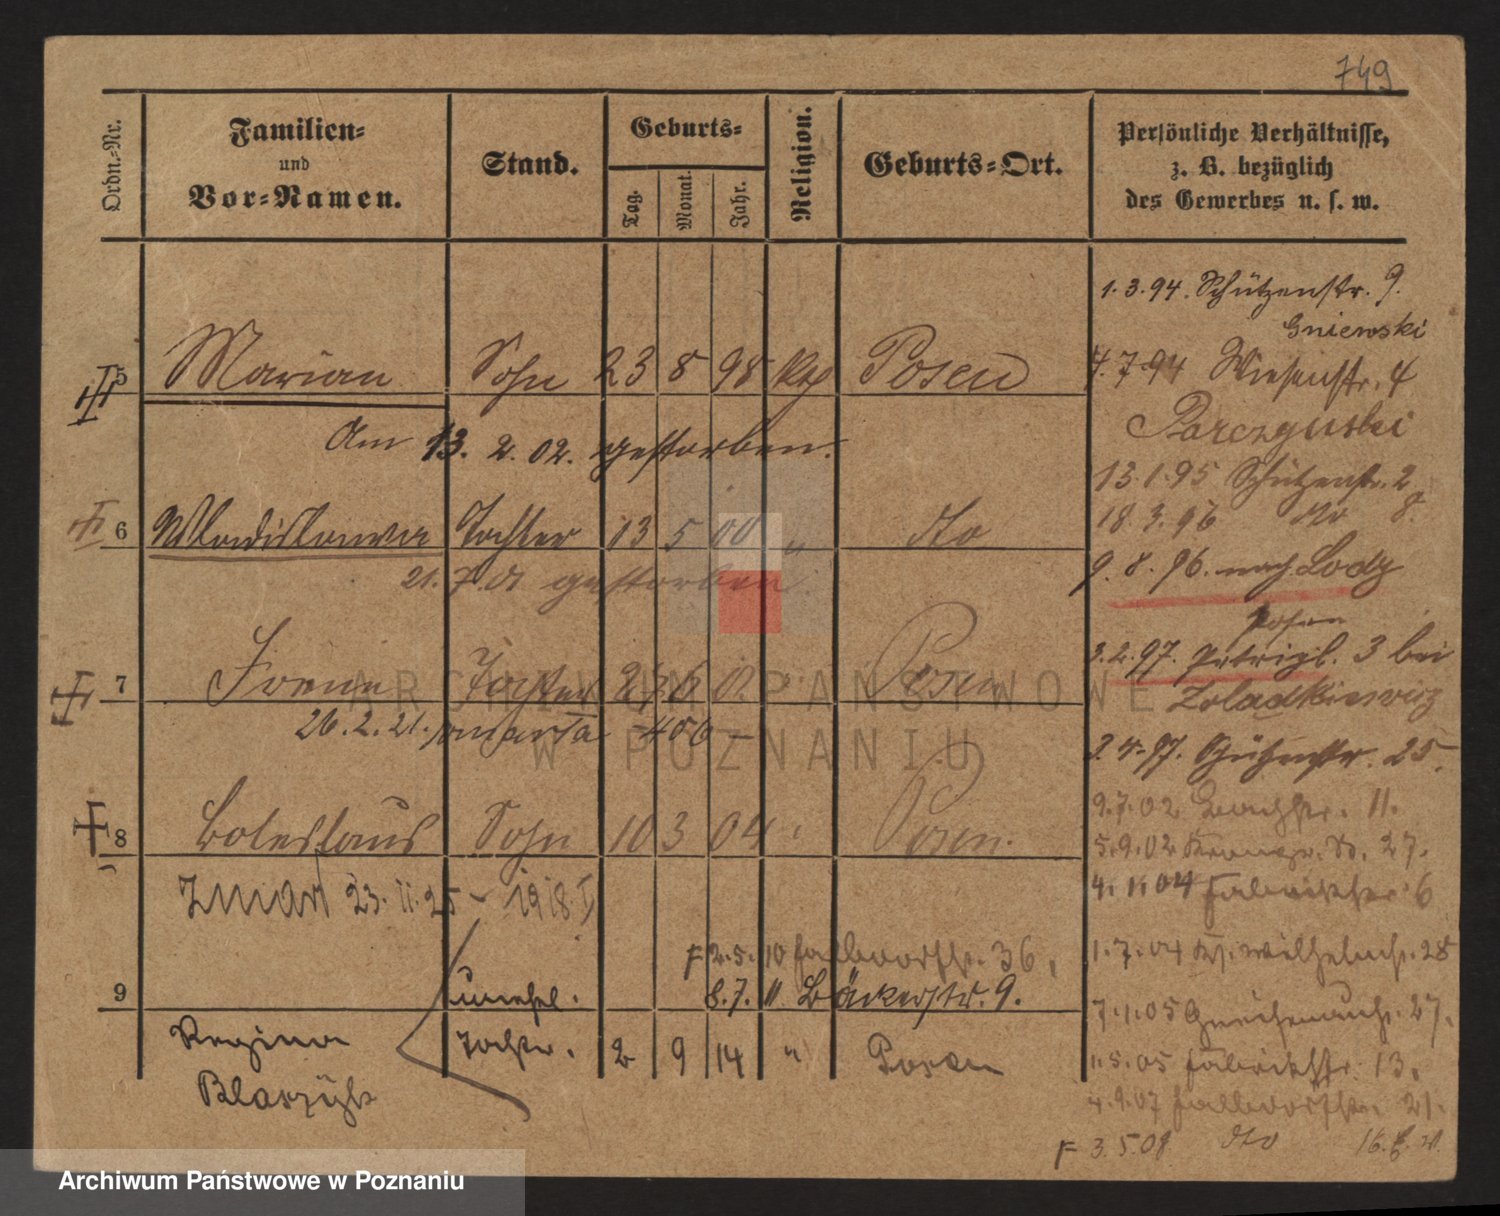 749
Ordn.-Nr.
Familien-
und
Vor-Namen.
Stand.
Geburts-
Tag.
Monat.
Jahr.
Religion.
Geburts-Ort.
Persönliche Verhältnisse,
z. B. bezüglich
des Gewerbes u. s. w.
1.3.94. Schützenstr. 9.
Gniewski
5 Marian Sohn 23 8 98 kth Posen
4.7.94 Wiesenstr. 4
Am 13. 2. 02. gestorben.
13.1.95 Schützenstr. 2
18.3.96 dto 8.
6 Wladislawa Tochter 13 5 00 " dto
21.7.01 gestorben.
9.8.96. nach Lodz
Posen
3.2.97. 3 bei
Zoladkiewicz
7 Irene Tochter 6 02 " Posen
26.2.21.
2.4.97. Schützenstr. 25.
8 Boleslaus Sohn 10 3 04 " Posen.
9.7.02 11.
5.9.02 27.
4.1.04 Fabrikstr. 6
Zmarł 23.11.25 - 1918
1.7.04 Kr. Wilhelmstr. 28
F 2.5.10 36.
9 unehel. 8.7.11 Bäckerstr. 9.
7.1.05 27.
Regina Tochter. 2 9 14 " Posen
1.5.05 Fabrikstr. 13.
Blaszyk
4.9.07 21.
F 3.5.08 dto
ARCHIWUM PAŃSTWOWE
W POZNANIU
Archiwum Państwowe w Poznaniu